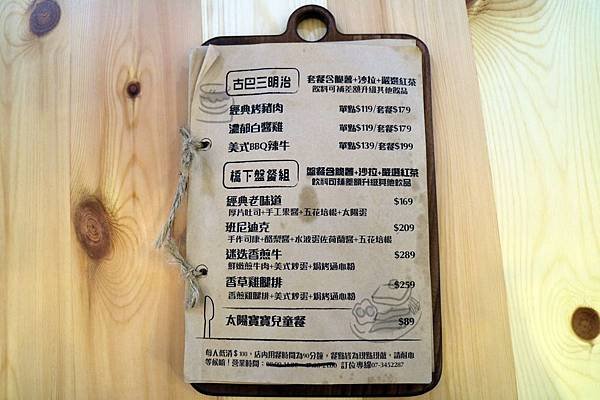 古巴三明治
套餐含脆薯+沙拉+嚴選紅茶
飲料可補差額升級其他飲品
經典烤豬肉 單點$119/套餐$179
濃郁白醬雞 單點$119/套餐$179
美式BBQ辣牛 單點$139/套餐$199
橋下盤餐組
盤餐含脆薯+沙拉+嚴選紅茶
飲料可補差額升級其他飲品
經典老味道 $169
厚片吐司+手工果醬+五花培根+太陽蛋
班尼迪克 $209
手作司康+酪梨醬+水波蛋佐荷蘭醬+五花培根
迷迭香煎牛 $289
鮮嫩煎牛肉+美式炒蛋+焗烤通心粉
香草雞腿排 $259
香煎雞腿排+美式炒蛋+焗烤通心粉
太陽寶寶兒童餐 $89
每人低消$100，店內用餐時間為90分鐘，餐點皆為現點現做，請耐心
等候唷！營業時間： 訂位專線07-3452287